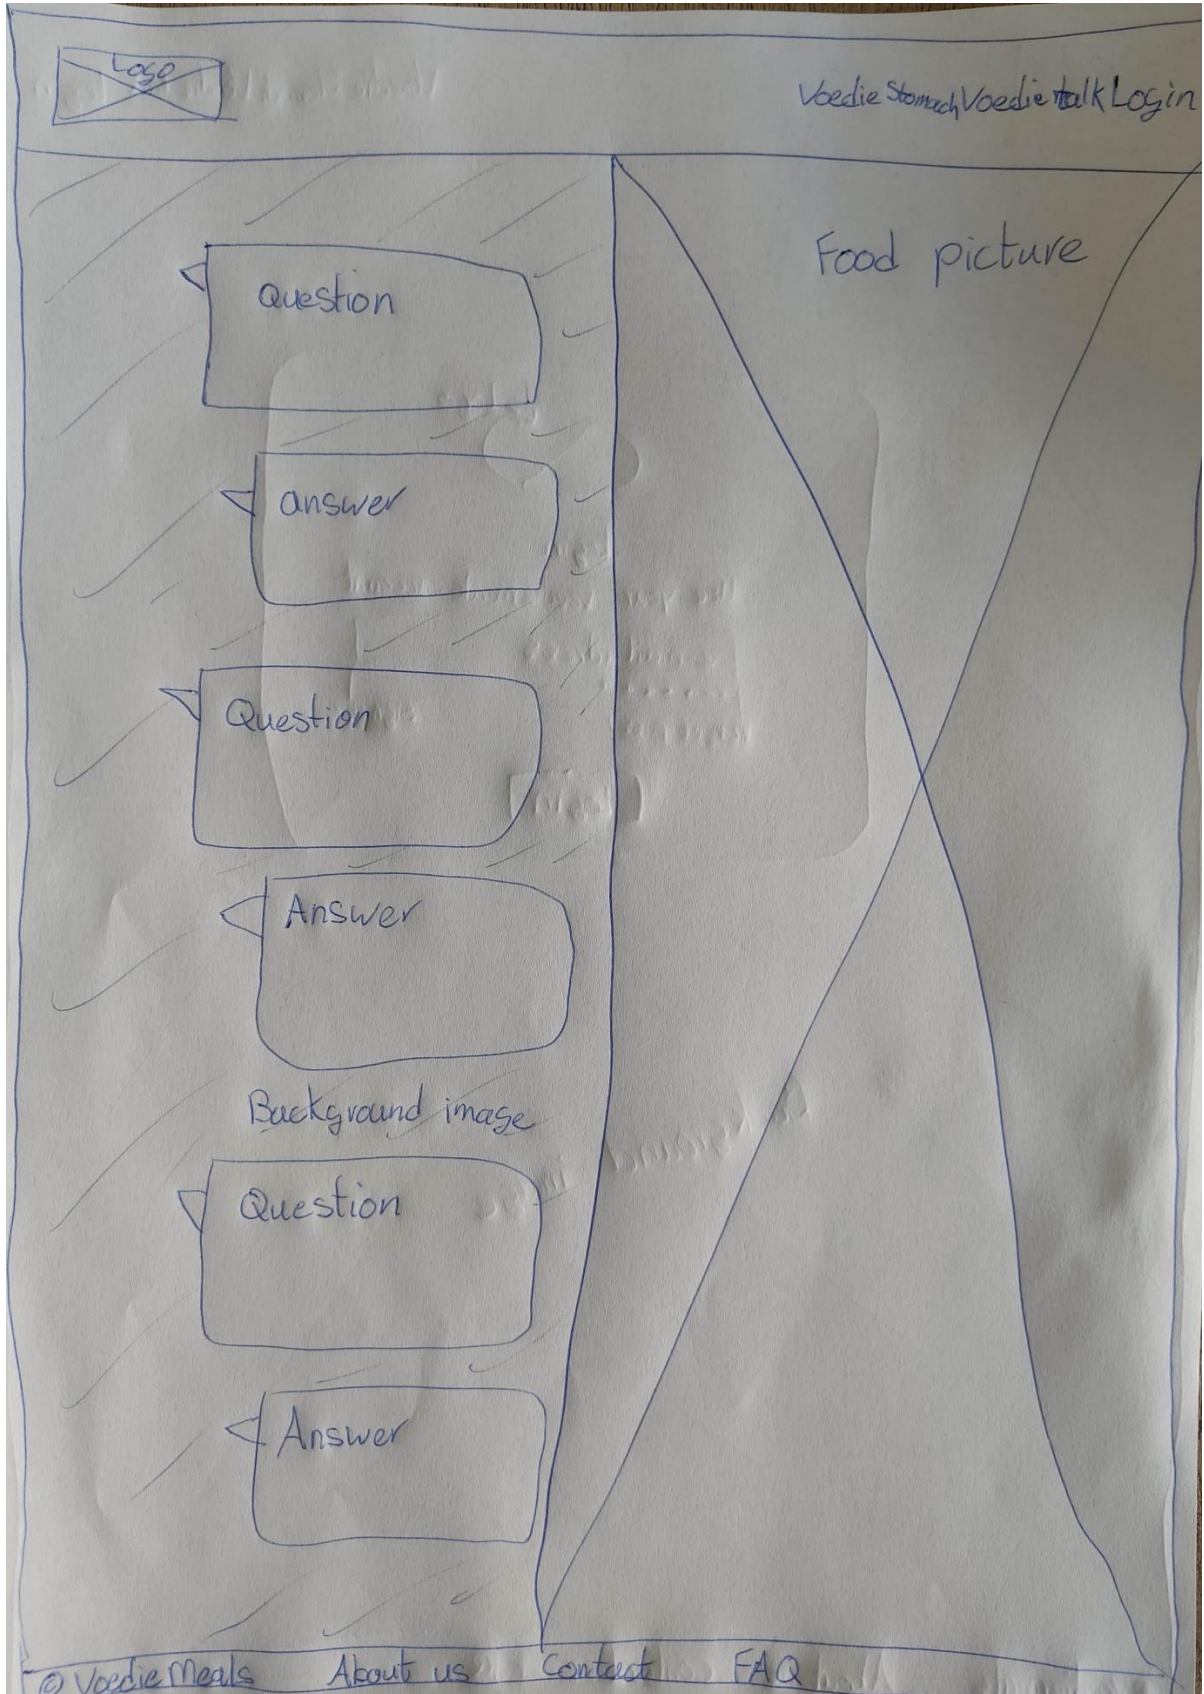 Logo
Voedie Stomach Voedie talk Login
Food picture
Question
answer
Question
Answer
Background image
Question
Answer
© VoedieMeals About us Contact FAQ